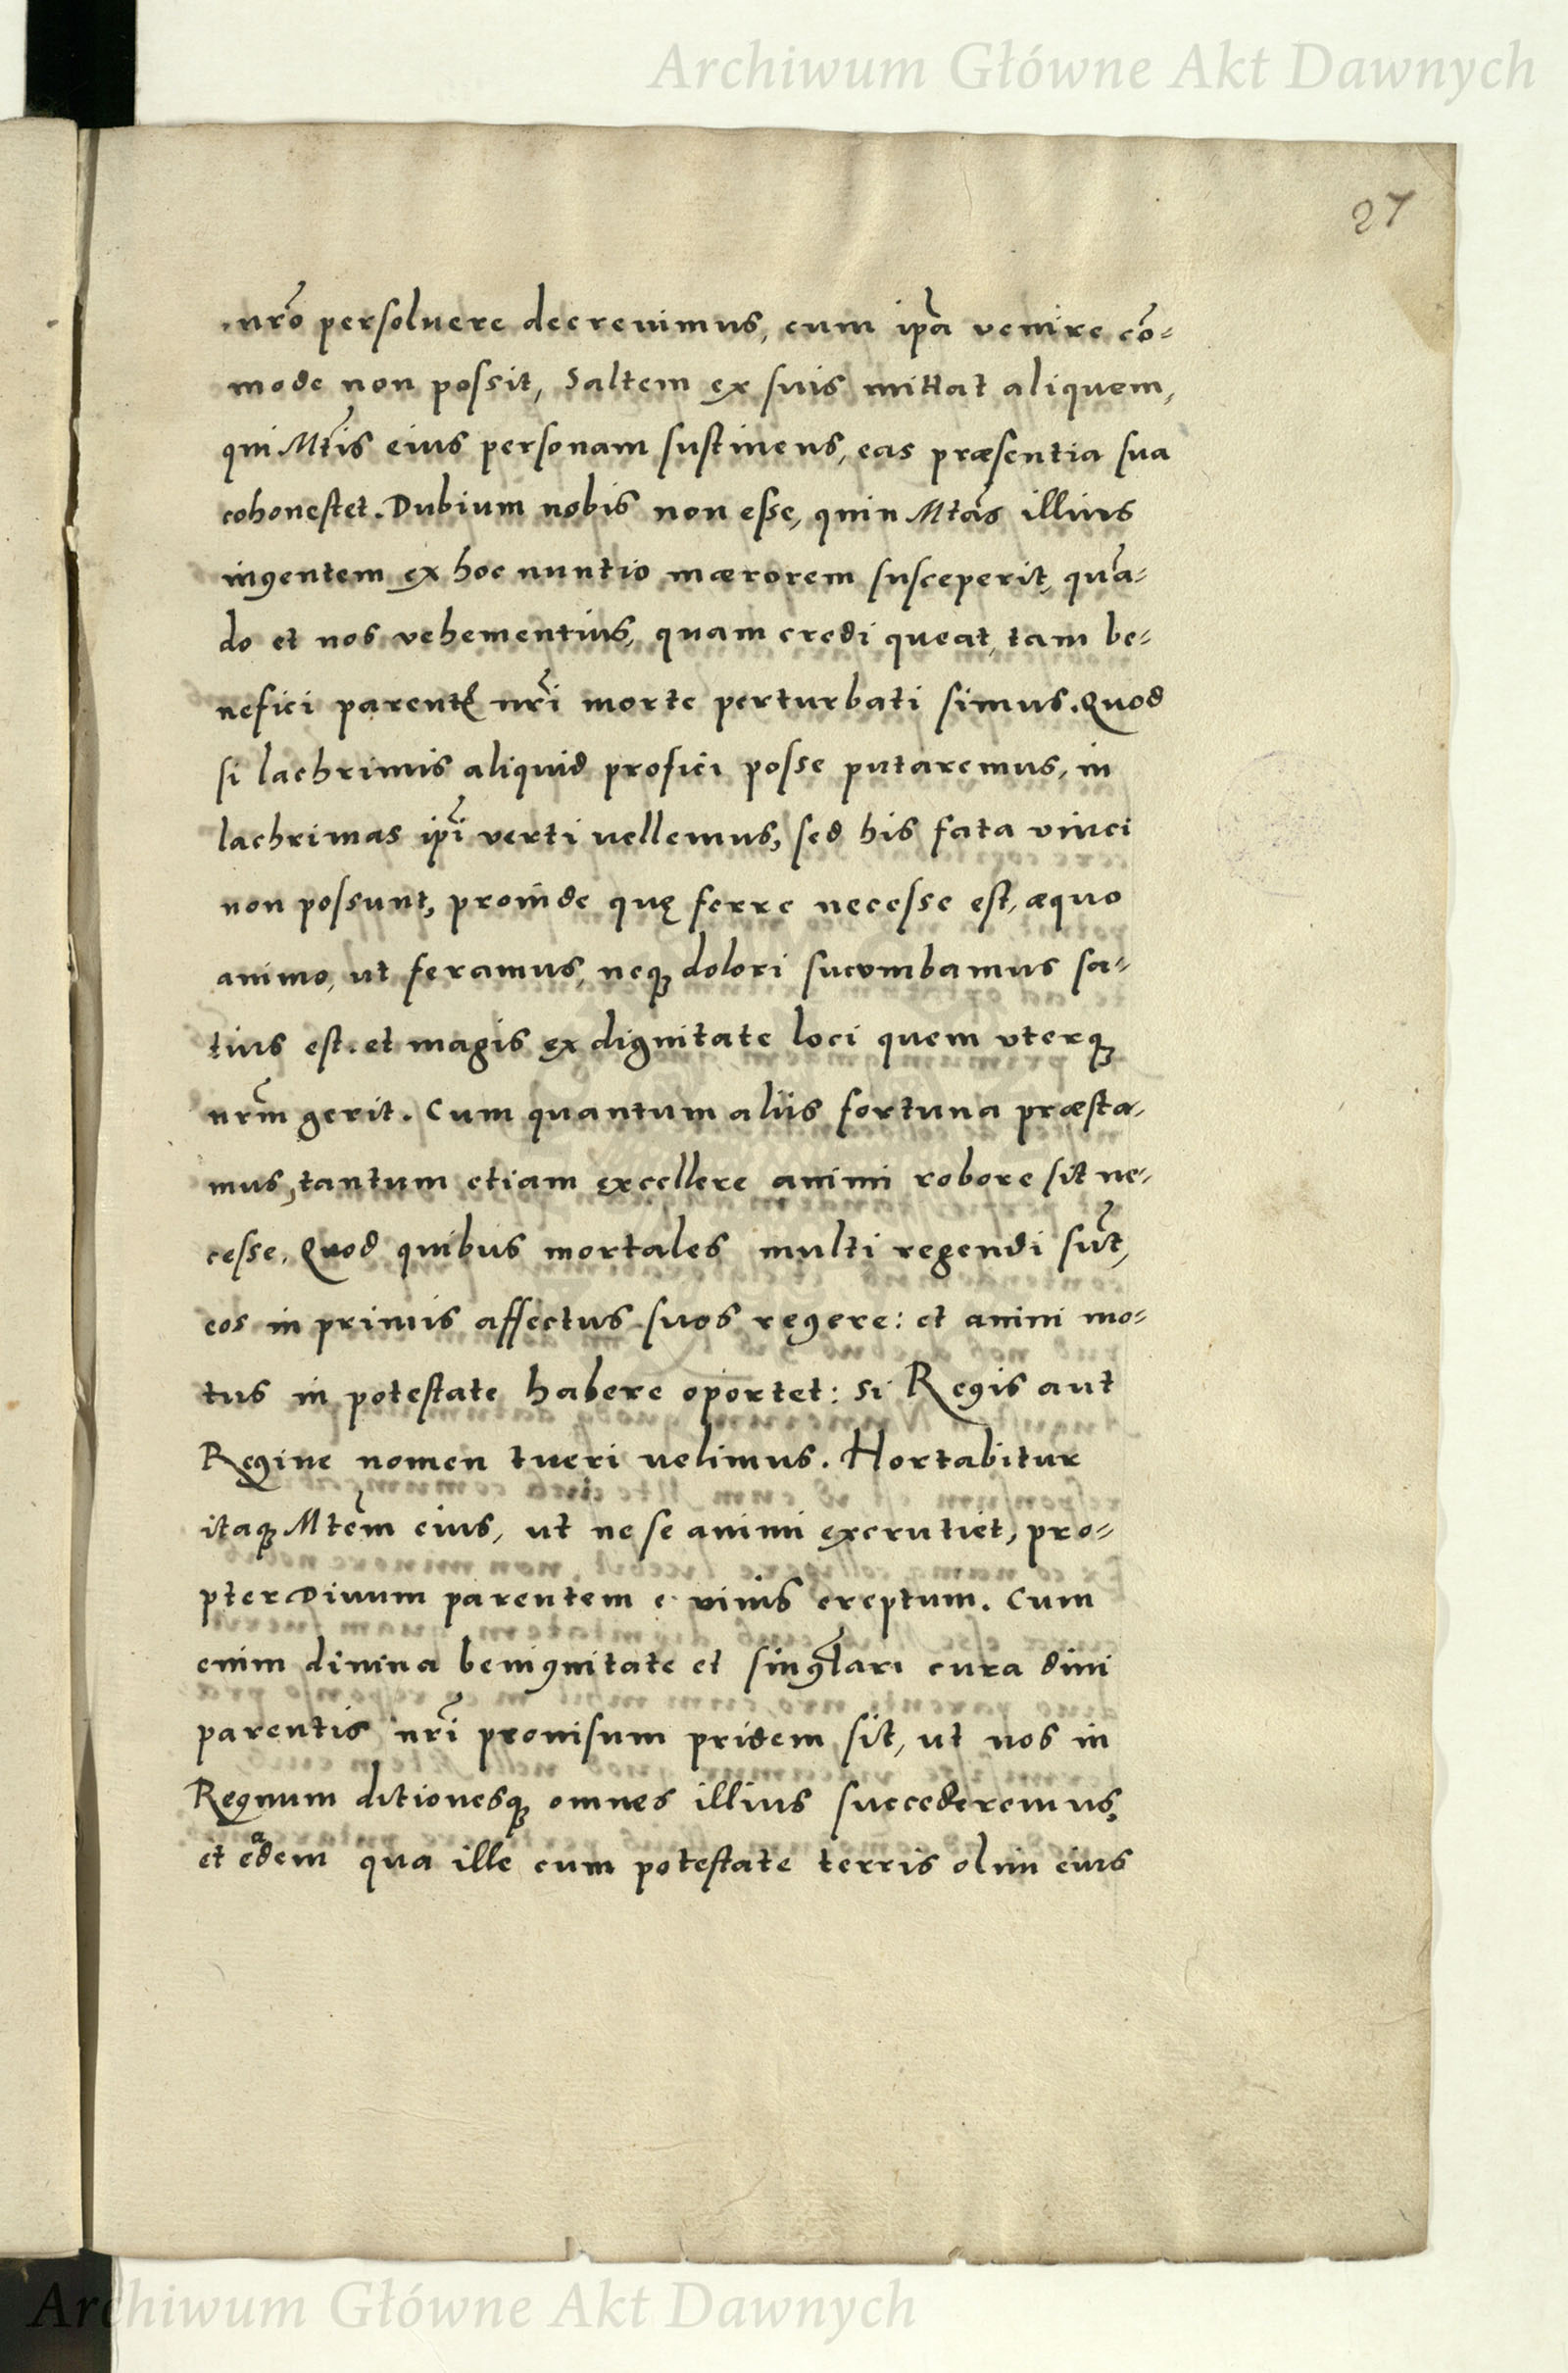 Archiwum Główne Akt Dawnych
27
nr̃o persoluere decreuimus, cum ip̃a venire cõ-
mode non possit, Saltem ex suis mittat aliquem,
qui Mt̃is eius personam sustinens, eas præsentia sua
cohonestet. Dubium nobis non esse, quin Mtãs illius
ingentem ex hoc nuntio mærorem susceperit, quã-
do et nos vehementius, quam credi queat, tam be-
nefici parentꝭ nr̃i morte perturbati simus. Quod
si lachrimis aliquid profici posse putaremus, in
lachrimas ip̃i verti uellemus, sed his fata vinci
non possunt, proinde quę ferre necesse est, æquo
animo, ut feramus, neqꝫ dolori sucumbamus sa-
tius est. et magis ex dignitate loci quem vterqꝫ
nrm̃ gerit. Cum quantum aliis fortuna præsta-
mus, tantum etiam excellere animi robore sit ne-
cesse. Quod quibus mortales multi regendi sũt,
eos in primis affectus suos regere: et animi mo-
tus in potestate habere oportet: si Regis aut
Regine nomen tueri uelimus. Hortabitur
itaqꝫ Mtẽm eius, ut ne se animi excrutiet, pro-
pter Diuum parentem e viuis ereptum. Cum
enim diuina benignitate et singl̃ari cura diui
parentis nr̃i prouisum pridem sit, ut nos in
Regnum ditionesqꝫ omnes illius succederemus,
et eadem qua ille cum potestate terris olim eius
Archiwum Główne Akt Dawnych